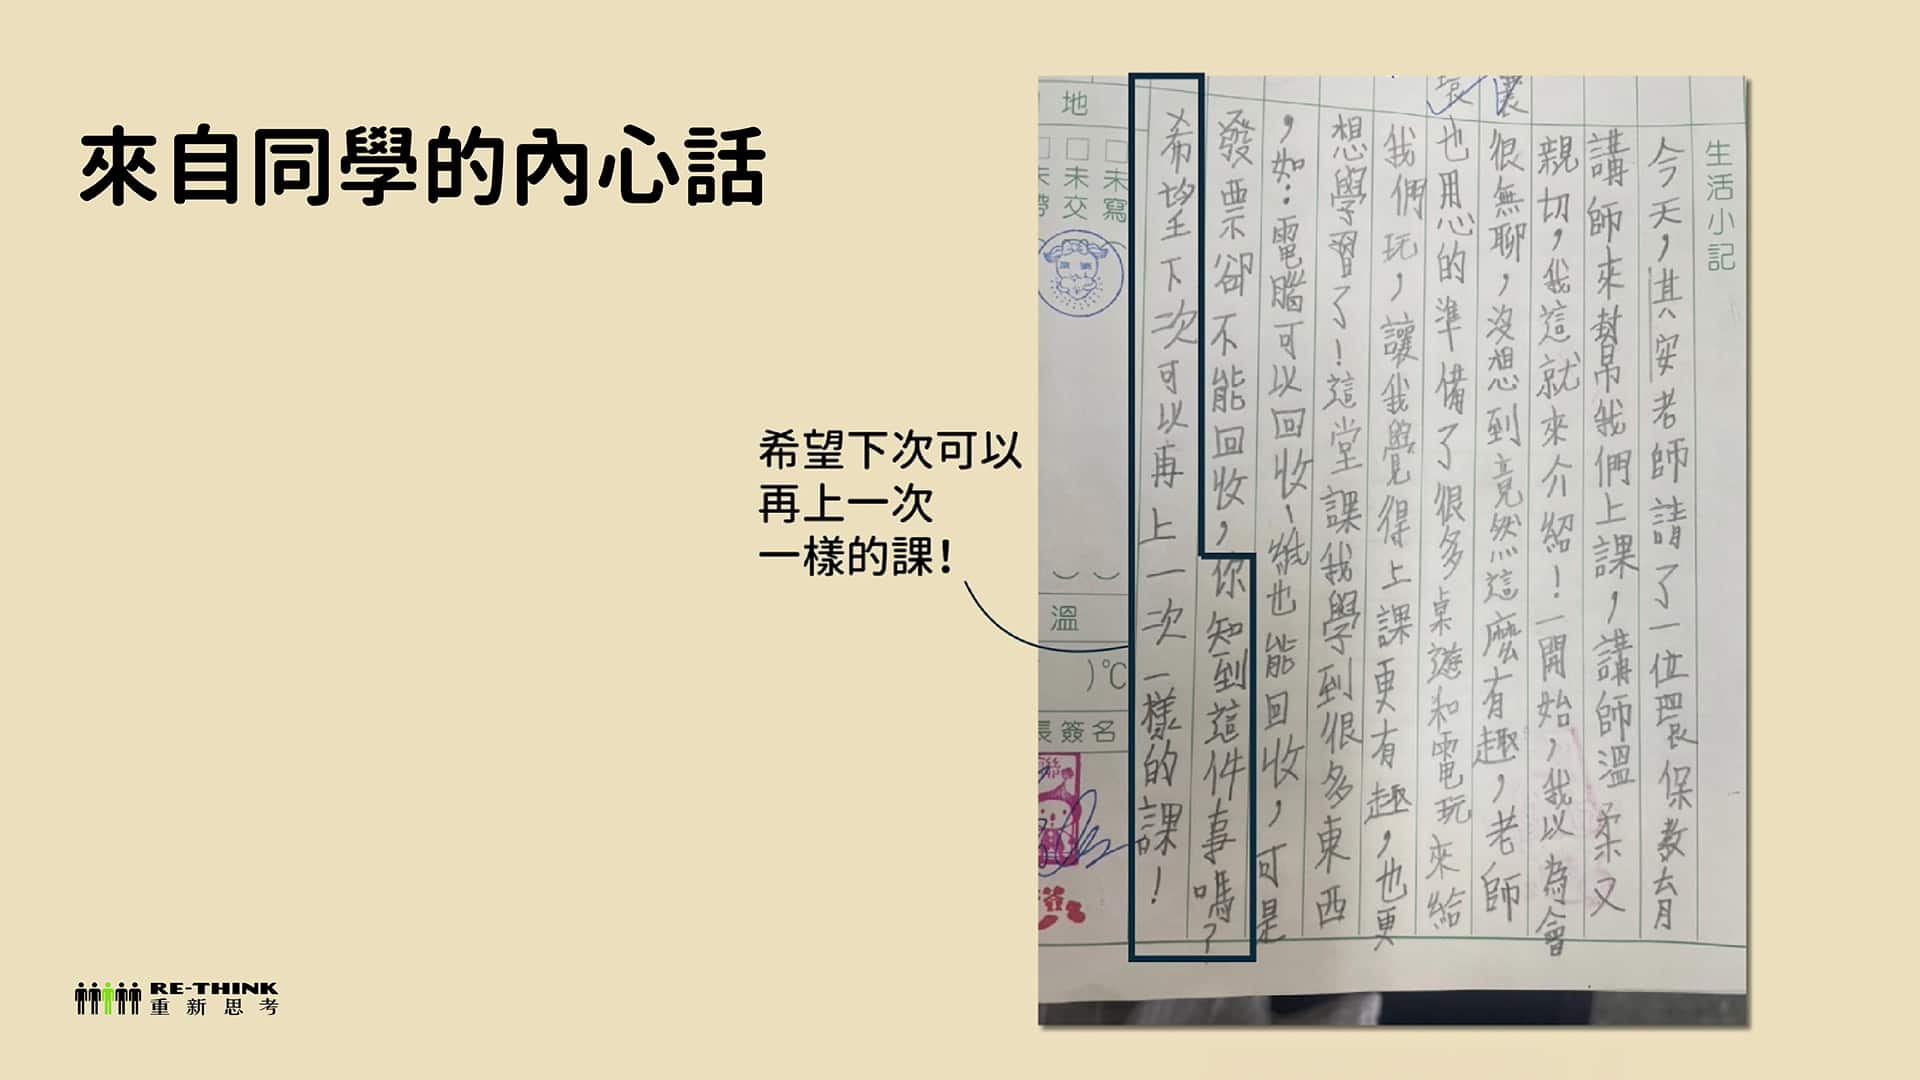 來自同學的內心話
希望下次可以
再上一次
一樣的課！
RE-THINK
重新思考
生活小記
今天，其安老師請了一位環保教育
講師來幫我們上課，講師溫柔又
親切，我這就來介紹！一開始，我以為會
很無聊，沒想到竟然這麼有趣，老師
也用心的準備了很多桌遊和電玩來給
我們玩，讓我覺得上課更有趣，也更
想學習了！這堂課我學到很多東西
，如：電腦可以回收、紙也能回收，可是
發票卻不能回收，你知到這件事嗎？
希望下次可以再上一次一樣的課！
環
地
未寫
未交
溫
)℃
簽名